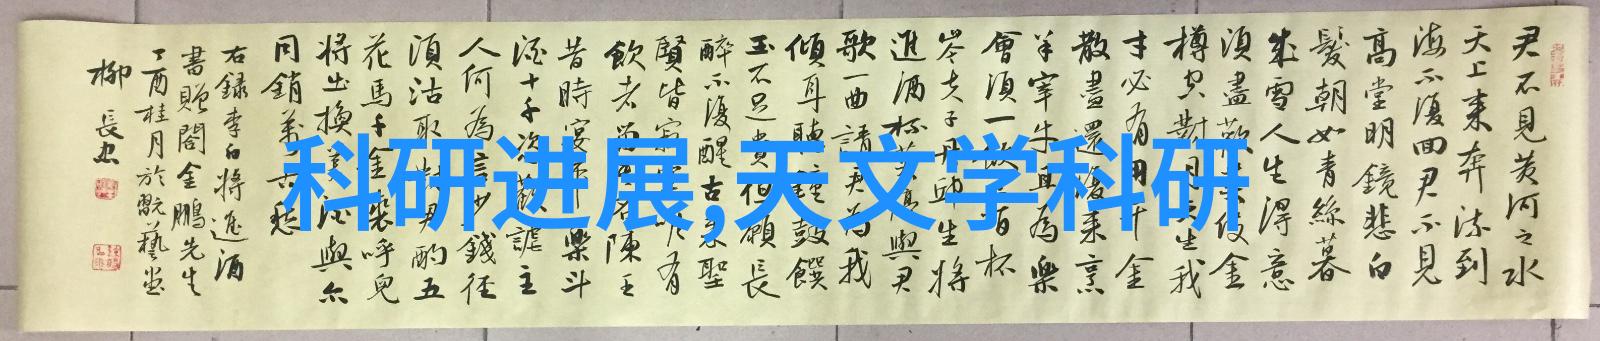 君不見黃河之水
天上來奔流到
海不復回君不見
高堂明鏡悲白
髮朝如青絲暮
成雪人生得意
須盡歡莫使金
樽空對月天生我
才必有用千金
散盡還復來烹
羊宰牛且為樂
會須一飲百杯
岑夫子丹邱生將
進酒杯莫停與君
歌一曲請君為我
傾耳聽鐘鼓饌
玉不足貴但願長
醉不復醒古來聖
賢皆寂寞唯有
飲者留名陳王
昔時宴平樂斗
酒十千恣歡謔主
人何為言少錢徑
須沽取對君酌五
花馬千金裘呼兒
將出換美酒與尔
同銷萬古愁
右録李白將進酒
書贈閣金鵬先生
丁酉桂月於翫藝堂
柳長忠
科研进展,天文学科研